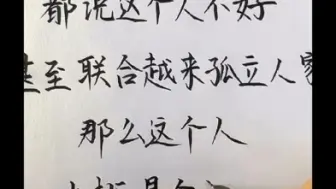 都说这个人不好
甚至联合起来孤立人家
那么这个人